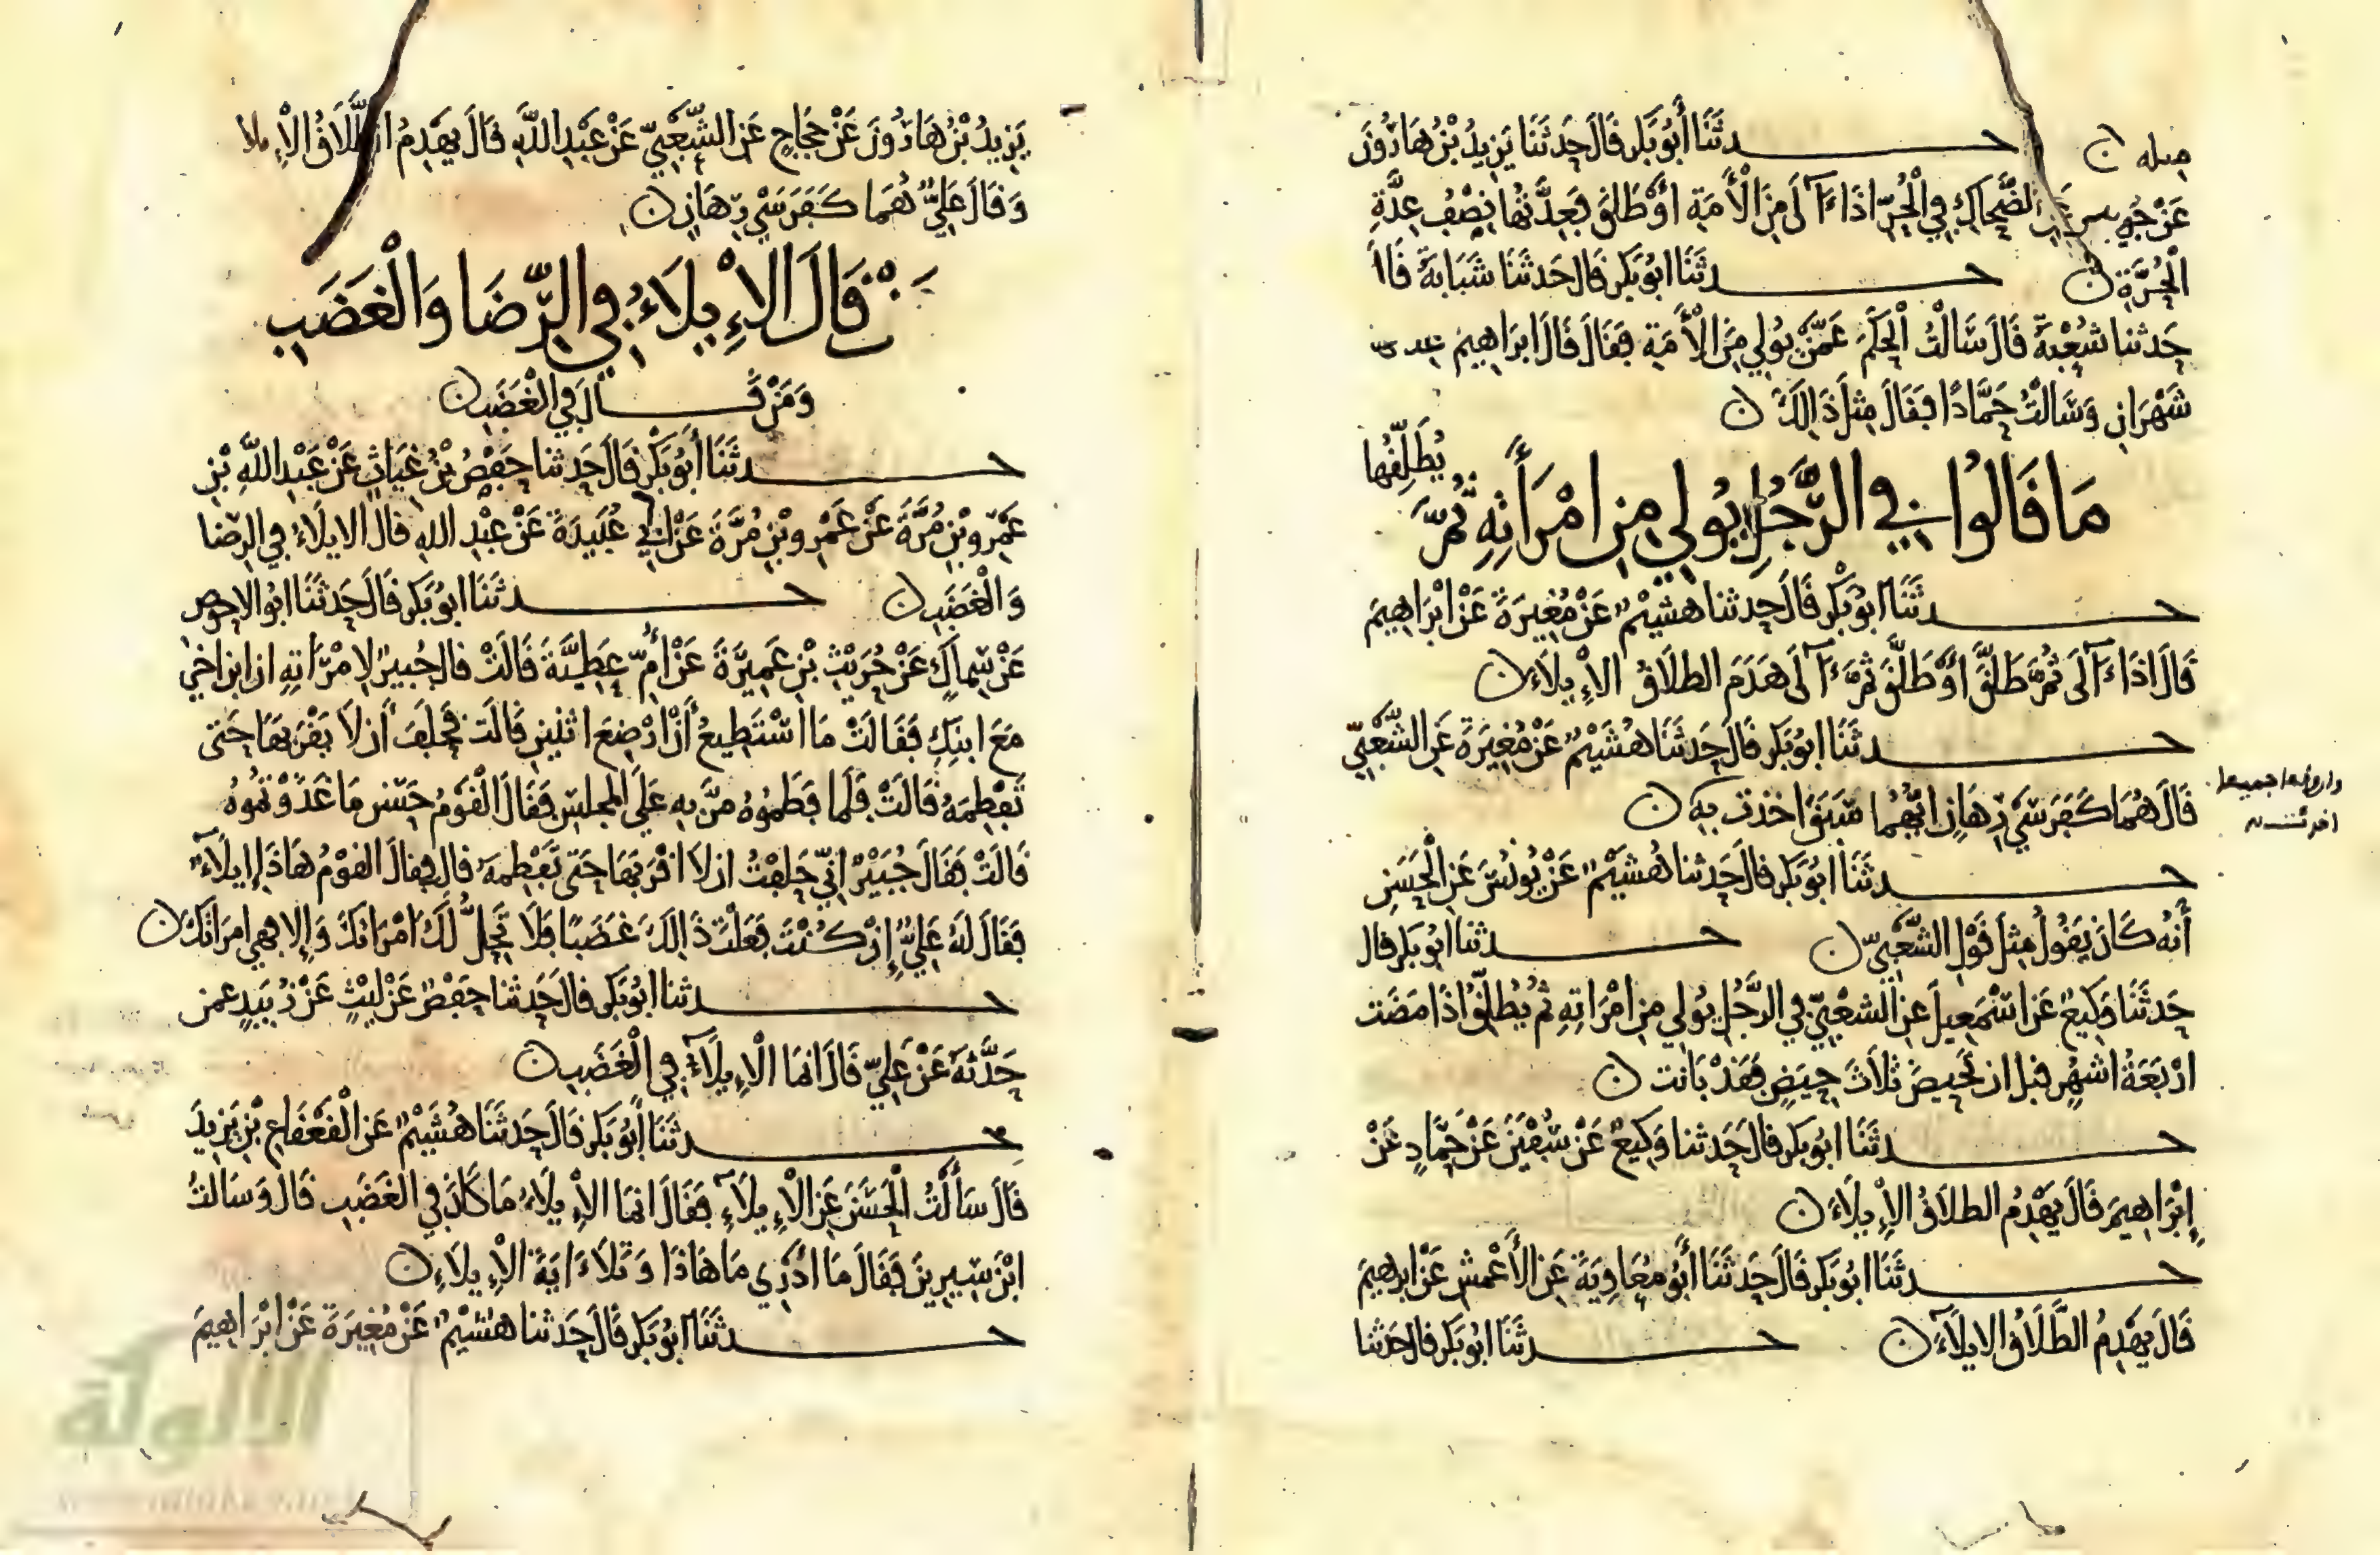 مثله حدثنا أبو بكر قال حدثنا يزيد بن هارون
عن جويبر عن الضحاك في الحر اذا ءالى من الأمة او طلق فعدتها نصف عدة
الحرة حدثنا ابو بكر قال حدثنا شبابة قال
حدثنا شعبة قال سالت الحكم عمن يولي من الأمة فقال قال ابراهيم عدتها
شهران وسالت حمادا فقال مثل ذالك
ما قالوا في الرجل يولي من امرأته ثم يطلقها
حدثنا ابو بكر قال حدثنا هشيم عن مغيرة عن ابراهيم
قال اذا ءالى ثم طلق او طلق ثم ءالى هدم الطلاق الإيلاء
حدثنا ابو بكر قال حدثنا هشيم عن مغيرة عن الشعبي
قال هما كفرسي رهان ايهما سبق اخذت به
وان وقعا جميعا
حدثنا ابو بكر قال حدثنا هشيم عن يونس عن الحسن
أنه كان يقول مثل قول الشعبي حدثنا ابو بكر قال
حدثنا وكيع عن اسمعيل عن الشعبي في الرجل يولي من امراته ثم يطلق اذا مضت
اربعة اشهر قبل ان تحيض ثلاث حيض فقد بانت
حدثنا ابو بكر قال حدثنا وكيع عن سفين عن حماد عن
إبراهيم قال يهدم الطلاق الإيلاء
حدثنا ابو بكر قال حدثنا أبو معاوية عن الأعمش عن ابرهيم
قال يهدم الطلاق الايلاء حدثنا ابو بكر قال حدثنا
يزيد بن هارون عن حجاج عن الشعبي عن عبد الله قال يهدم الطلاق الإيلا
وقال علي هما كفرسي رهان
من قال الإيلاء في الرضا والغضب
ومن قال في الغضب
حدثنا أبو بكر قال حدثنا حفص بن غياث عن عبد الله بن
عمرو بن مرة عن عمرو بن مرة عن ابي عبيدة عن عبد الله قال الايلاء في الرضا
والغضب حدثنا ابو بكر قال حدثنا ابو الاحوص
عن سماك عن حريث بن عميرة عن أم عطية قالت قال جبير لامراته ان ابن اخي
مع ابنك فقالت ما استطيع أن ارضع اثنين قالت فحلف أن لا يقربها حتى
تفطمه قالت فلما فطموه مر به على المجلس فقال القوم حسن ما غذوتموه
قالت فقال جبير اني حلفت ان لا اقربها حتى تفطمه قال فقال القوم هاذا إيلاء
فقال له علي إن كنت فعلت ذالك غضبا فلا تحل لك امراتك وإلا فهي امراتك
حدثنا ابو بكر قال حدثنا حفص عن ليث عن زبيد عمن
حدثه عن علي قال انما الإيلاء في الغضب
حدثنا أبو بكر قال حدثنا هشيم عن القعقاع بن يزيد
قال سألت الحسن عن الإيلاء فقال انما الإيلاء ما كان في الغضب قال وسالت
ابن سيرين فقال ما ادري ما هاذا وتلا ءاية الإيلاء
حدثنا ابو بكر قال حدثنا هشيم عن مغيرة عن ابراهيم
الألوكة